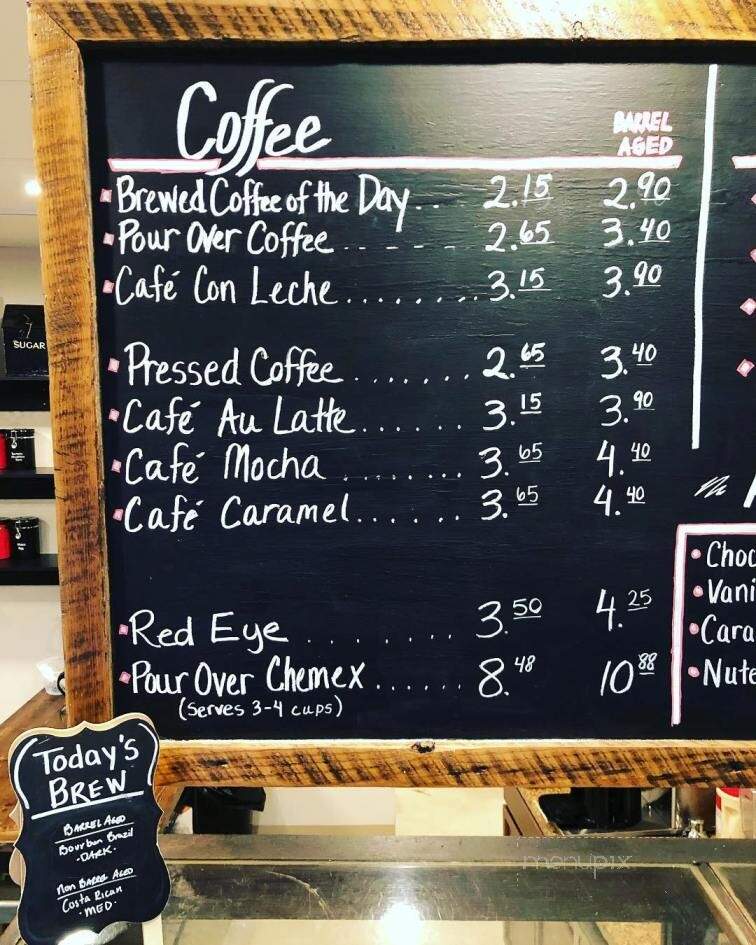 Coffee
BARREL
AGED
Brewed Coffee of the Day... 2.15 2.90
Pour Over Coffee ------ 2.65 3.40
Café Con Leche......... 3.15 3.90
Pressed Coffee....... 2.65 3.40
Café Au Latte...... 3.15 3.90
Café Mocha....... 3.65 4.40
Café Caramel...... 3.65 4.40
Red Eye....... 3.50 4.25
Pour Over Chemex...... 8.48 10 88
(Serves 3-4 cups)
Choc
Vani
Cara
Nute
SUGAR
Today's
BREW
BARREL AGED
Bourbon Brazil
·DARK·
Non Barrel Aged
Costa Rican
·MED·
menupix